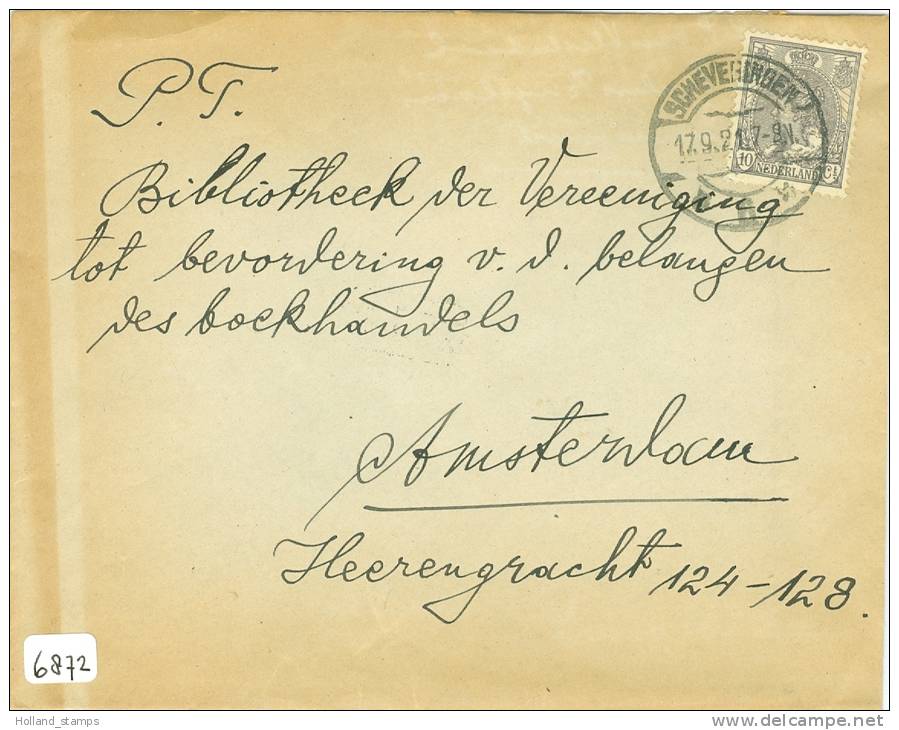 P. T.
Bibliotheek der Vereeniging
tot bevordering v. d. belangen
des boekhandels
Amsterdam
Heerengracht 124-128.
SCHEVENINGEN
17.9.21 7-8N
10 NEDERLAND Ct
6872
Holland_stamps
http://www.delcampe.net